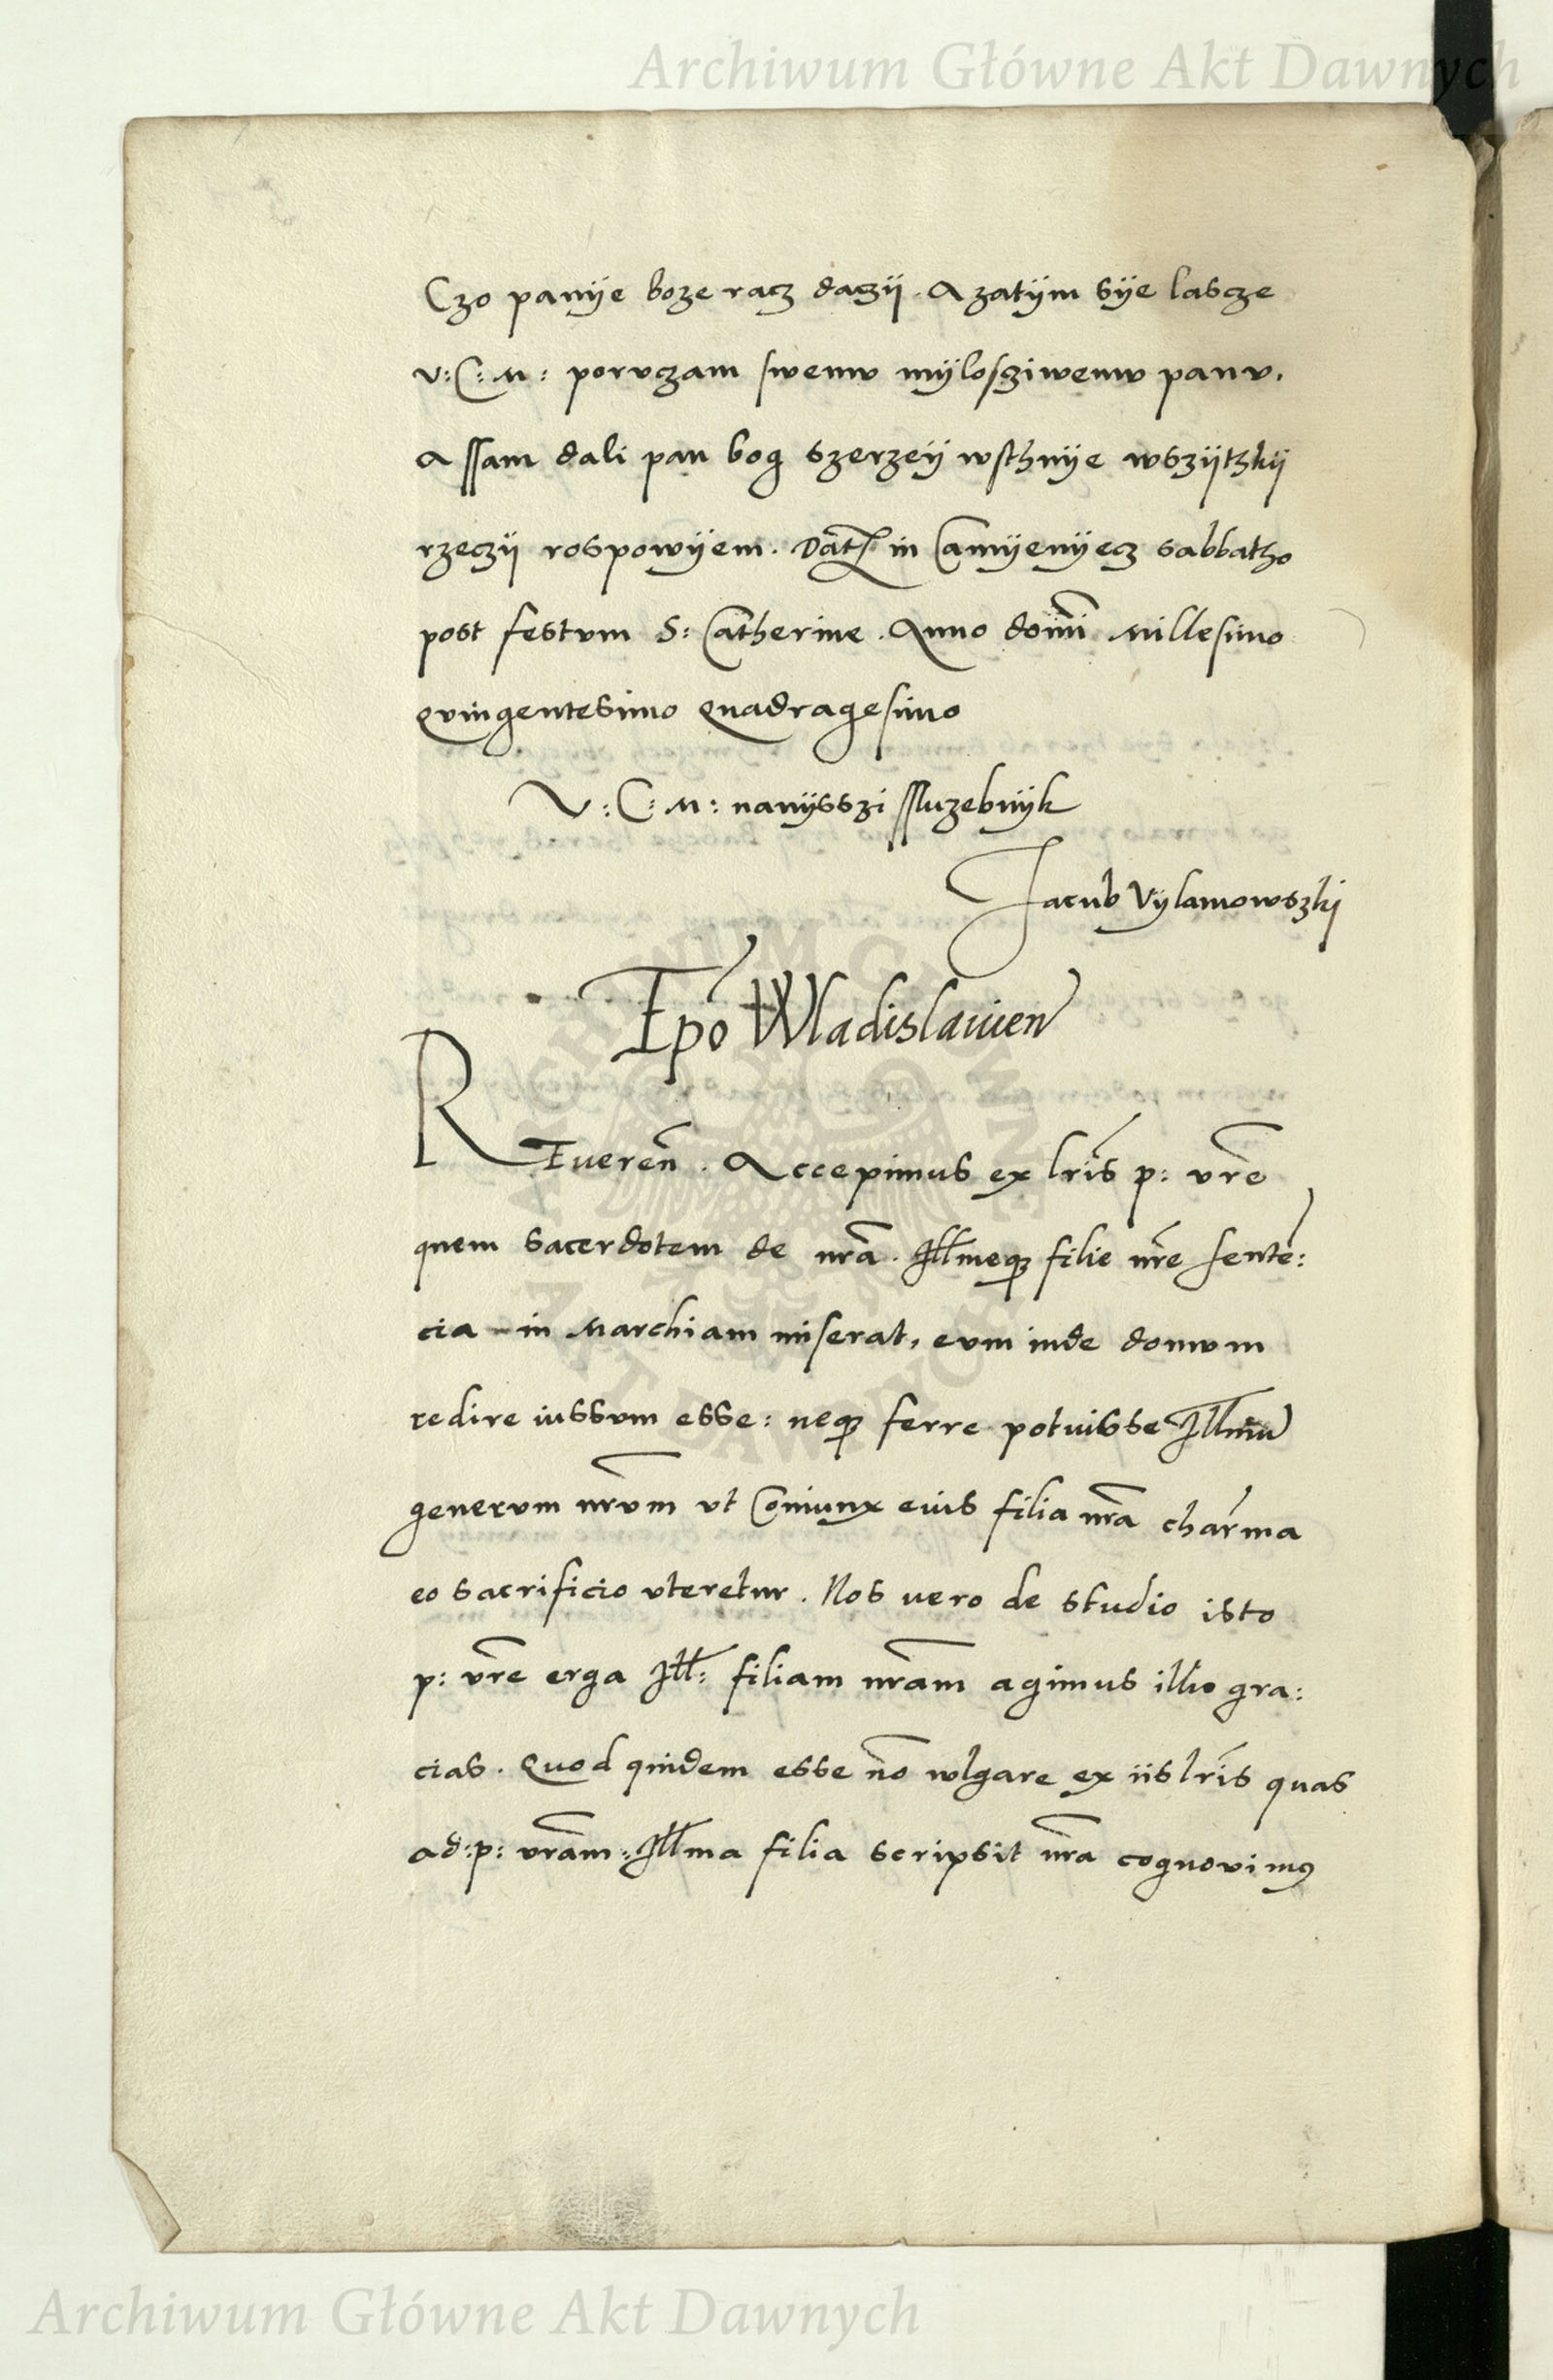 Archiwum Główne Akt Dawnych
Czo panÿe boze racz daczÿ. A zatÿm sÿe lascze
v: C: M: porvczam swemv mÿlosziwemv panv.
A ssam dali pan bog szerzeÿ wsthnÿe wszÿthkÿ
rzeczÿ rospowÿem. Dat̄ in Camÿenÿecz sabbatho
post festvm S: Catherine. Anno domi̅ Millesimo
Qvingentesimo Quadragesimo
V: C: M: nanÿsszi sluzebnÿk
Jacub Vÿlamowszkj
Epo̅ Wladislauien̅
REueren̅. Accepimus ex lri̅s p: vr̅e
quem sacerdotem de nr̅a. Ill̅meqꝫ filie nr̅e sente̅:
cia in Marchiam miserat, evm inde domvm
redire iussvm esse: neqꝫ ferre potuisse Ill̅mu̅
genervm nr̅vm vt Coniunx eius filia nr̅a char̅ma
eo sacrificio vteretur. Nos vero de studio isto
p: vr̅e erga Ill̅: filiam nr̅am agimus illi gra:
cias. Quod quidem esse no̅ wlgare ex iis lri̅s quas
ad: p: vr̅am: Ill̅ma filia scripsit nr̅a cognovimꝰ
ARCHIWUM GŁÓWNE AKT DAWNYCH
Archiwum Główne Akt Dawnych